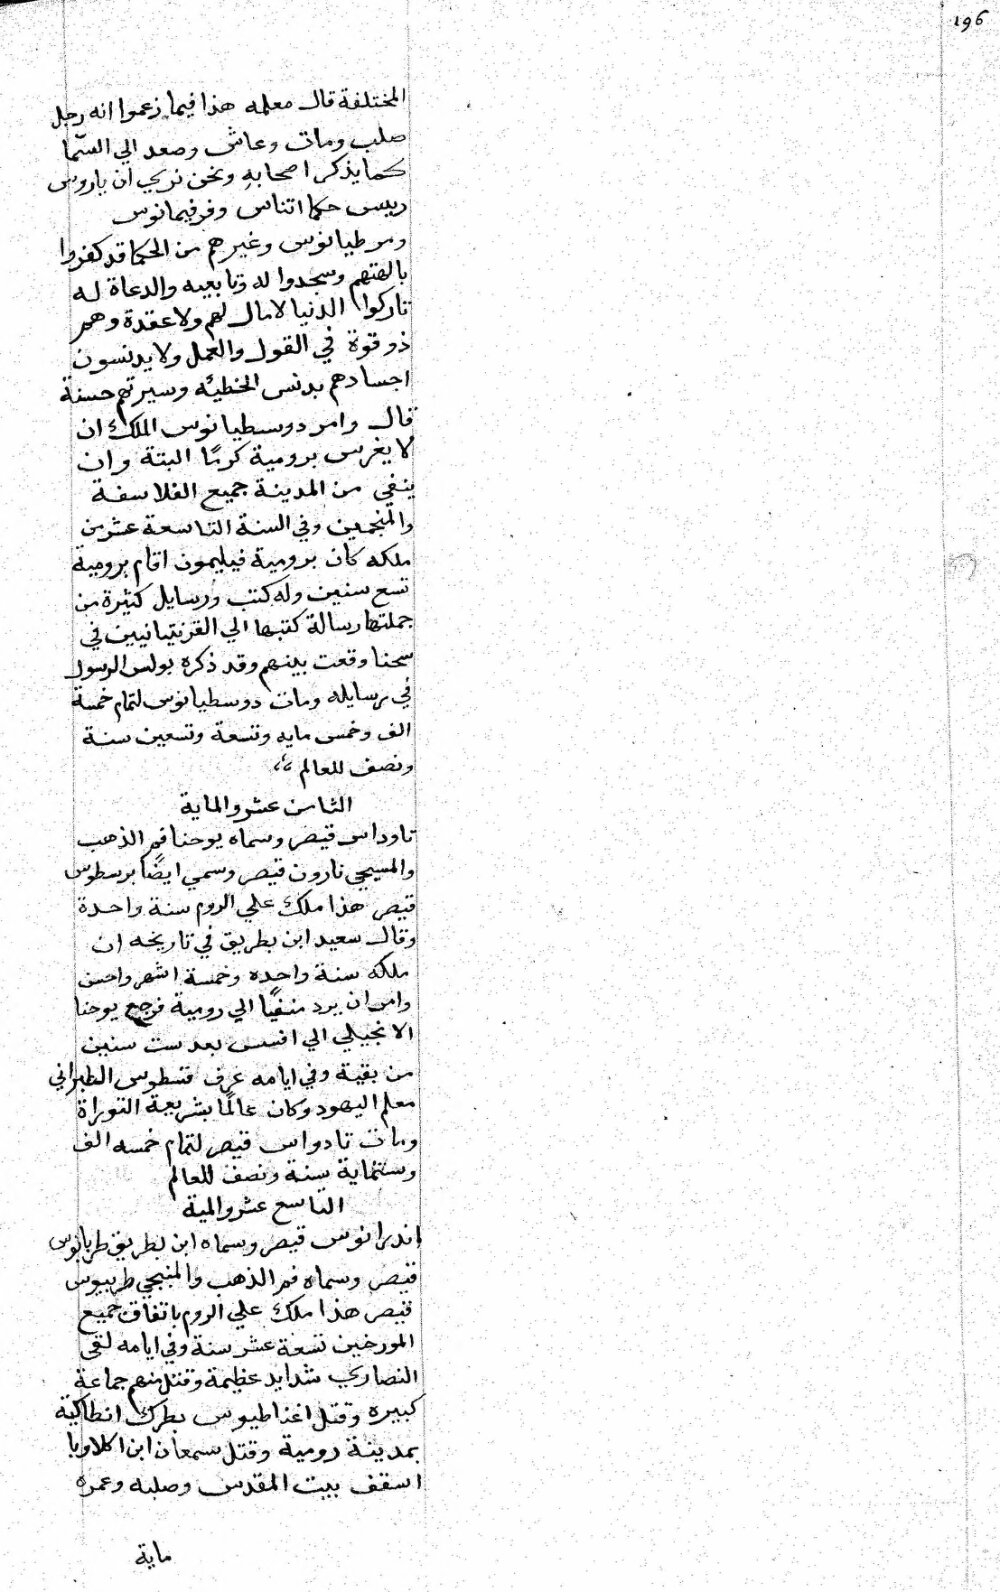 196
المختلفة قال معلمه هذا فيما زعموا انه رجل
صلب ومات وعاش وصعد الي السّما
كما يذكر اصحابه ونحن نري ان باروس
رييس حكما اتناس وفرفيمانوس
ومرطيانوس وغيرهم من الحكما قد كفروا
بالهتهم وسجدوا له وتابعيه والدعاة له
تاركوا الدنيا لا مال لهم ولا عقدة وهم
ذو قوة في القول والعمل ولا يدنسون
اجسادهم بدنس الخطيئه وسيرتهم حسنة
قال وامر دوسطيانوس الملك ان
لا يغرس برومية كرمًا البتة وان
ينفي من المدينة جميع الفلاسفة
والمنجمين وفي السنة التاسعة عشر من
ملكه كان برومية فيليمون اقام برومية
تسع سنين وله كتب ورسايل كثيرة من
جملتها رسالة كتبها الي القرنتيانيين في
سحنا وقعت بينهم وقد ذكره بولس الرسول
في رسايله ومات دوسطيانوس لتمام خمسة
الف وخمس مايه وتسعة وتسعين سنة
ونصف للعالم
الثامن عشر والماية
تاوداس قيصر وسماه يوحنا فم الذهب
والمسيحي نارون قيصر وسمي ايضًا برسطوس
قيصر هذا ملك علي الروم سنة واحدة
وقال سعيد ابن بطريق في تاريخه ان
ملكه سنة واحده وخمسة اشهر واحسن
وامر ان يرد منفيًا الي رومية فرجع يوحنا
الانجيلي الي افسس بعد ست سنين
من بقية وفي ايامه عرف قسطوس الطبراني
معلم اليهود وكان عالمًا بشريعة التوراة
ومات تادواس قيصر لتمام خمسه الف
وستماية سنة ونصف للعالم
التاسع عشر والمية
اندرانوس قيصر وسماه ابن بطريق طربانوس
قيصر وسماه فم الذهب والمنبجي طربيوس
قيصر هذا ملك علي الروم باتفاق جميع
المورخين تسعة عشر سنة وفي ايامه لقى
النصاري شدايد عظيمة وقتل منهم جماعة
كبيره وقتل اغناطيوس بطرك انطاكية
بمدينة رومية وقتل سمعان ابن اكلاوبا
اسقف بيت المقدس وصلبه وعمره
ماية